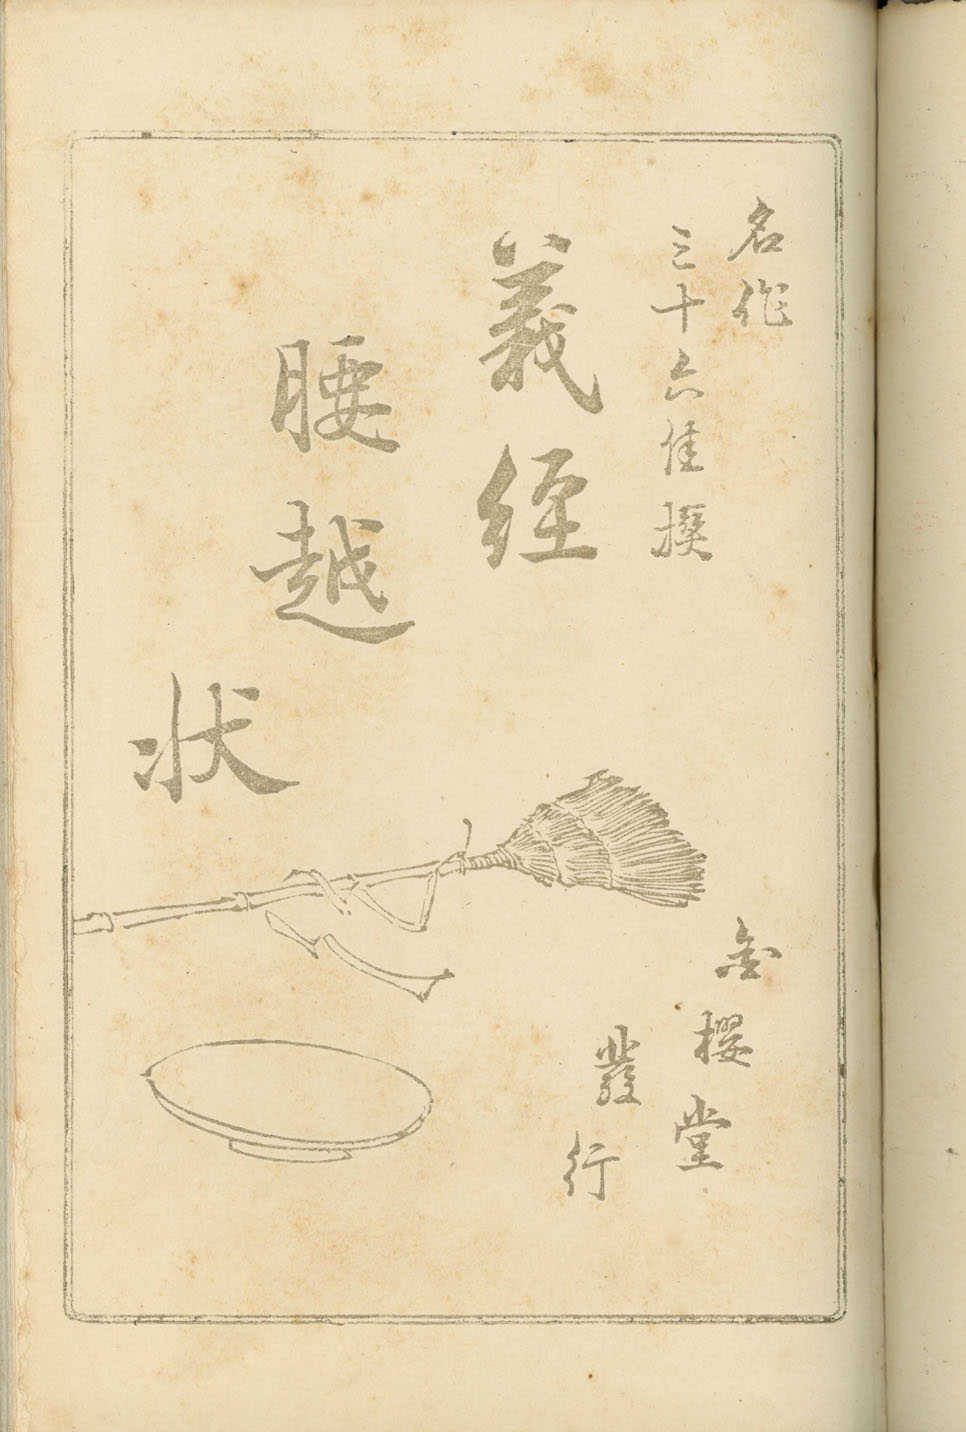 名作
三十六佳撰
義経
腰越
状
金櫻堂
發行